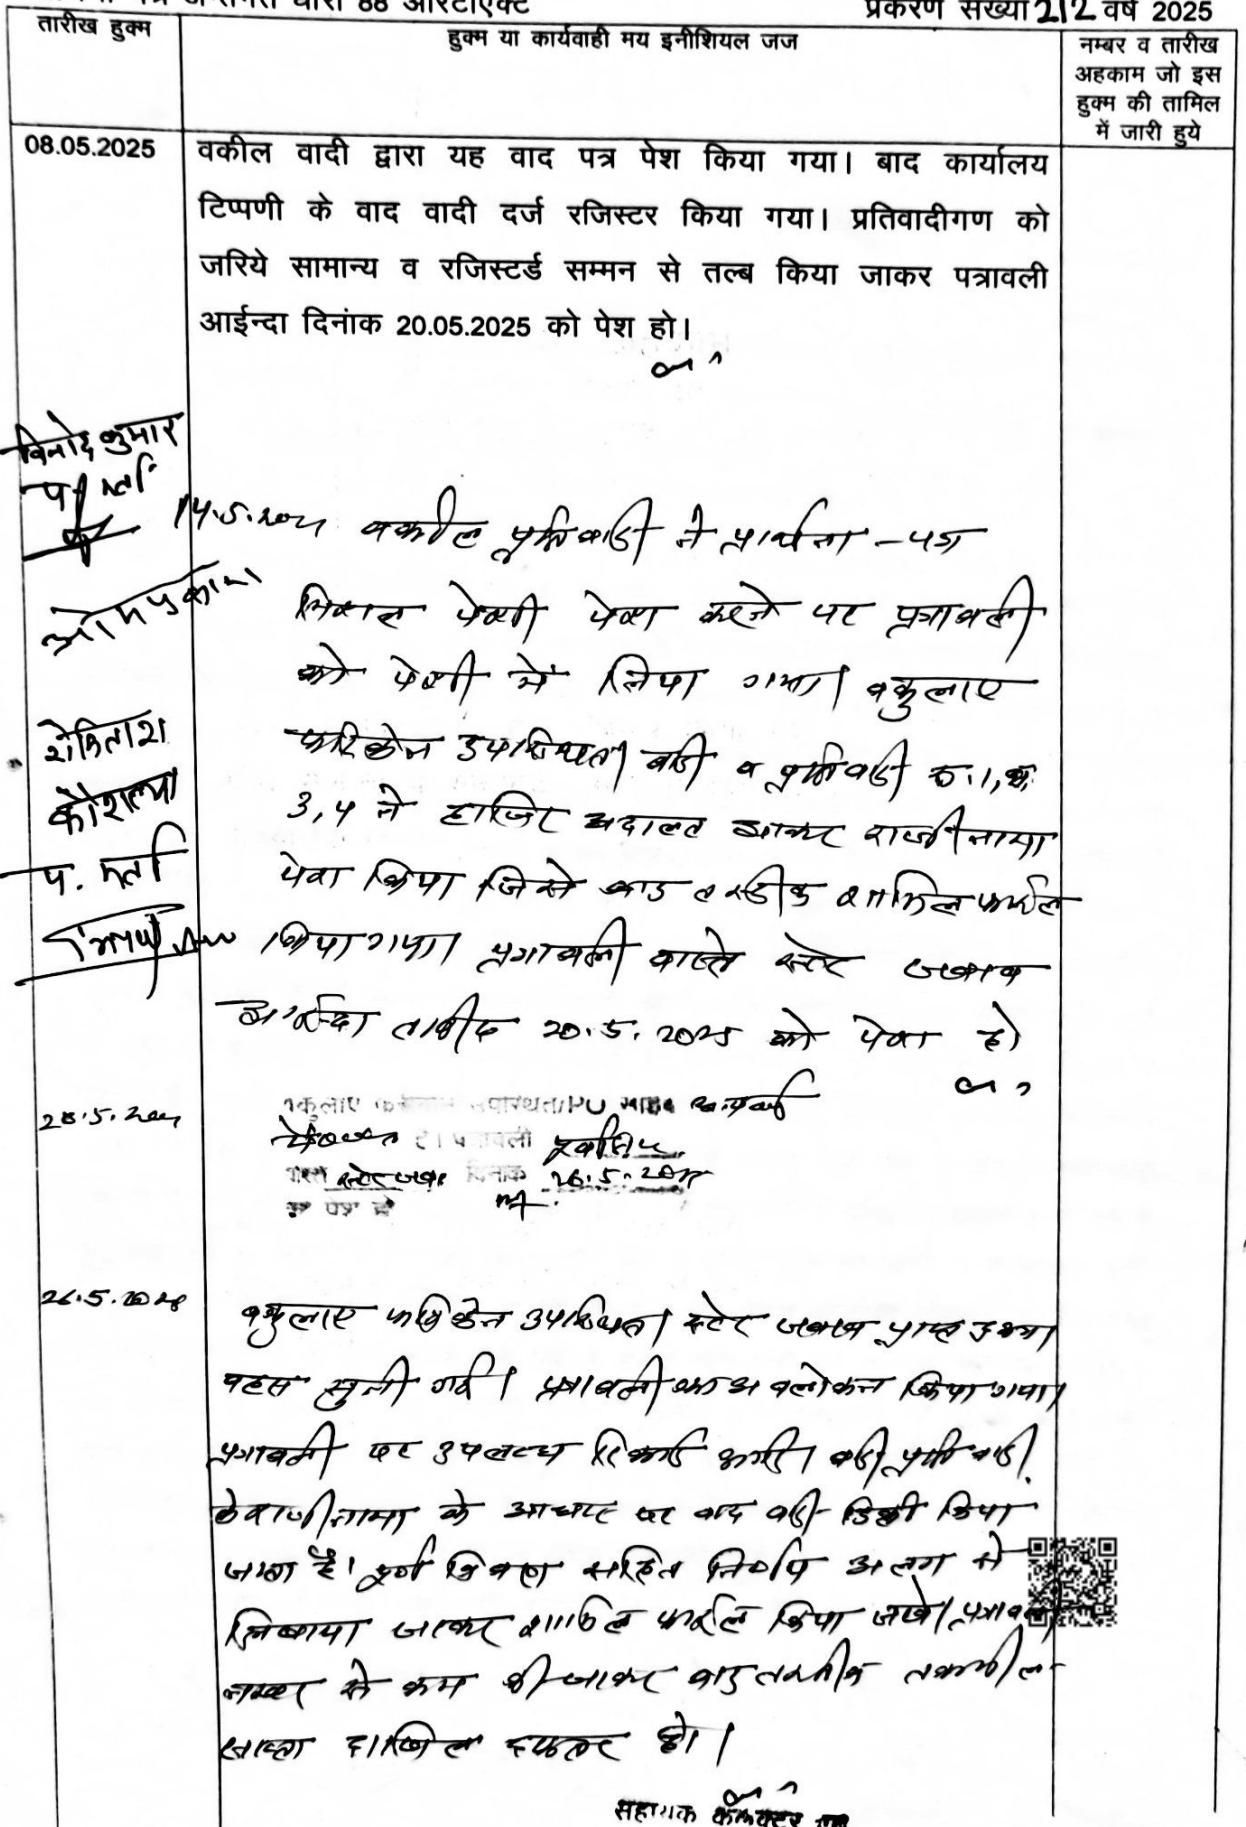 धारा 88 आरटीएक्ट
प्रकरण संख्या 212 वर्ष 2025
तारीख हुक्म
हुक्म या कार्यवाही मय इनीशियल जज
नम्बर व तारीख
अहकाम जो इस
हुक्म की तामिल
में जारी हुये
08.05.2025
वकील वादी द्वारा यह वाद पत्र पेश किया गया। बाद कार्यालय
टिप्पणी के वाद वादी दर्ज रजिस्टर किया गया। प्रतिवादीगण को
जरिये सामान्य व रजिस्टर्ड सम्मन से तल्ब किया जाकर पत्रावली
आईन्दा दिनांक 20.05.2025 को पेश हो।
विनोद कुमार
14.5.2025 वकील प्रतिवादी ने प्रार्थना-पत्र
ओमप्रकाश
पेशी पेश करने पर पत्रावली
को पेशी में लिया गया। वकुलाए
रोहिताश
फरिकेन उपस्थित। वादी व प्रतिवादी क्र.1,
कौशल्या
3,4 ने हाजिर अदालत आकर राजीनामा
पेश किया जिसे बाद तस्दीक शामिल फाईल
किया गया। पत्रावली वास्ते स्टेट जवाब
आईन्दा तारीख 20.5.2025 को पेश हो
वकुलाए उपस्थित। PO
पत्रावली
स्टेट जवाब दिनांक 26.5.2025
को पेश हो
26.5.2025
वकुलाए फरिकेन उपस्थित। स्टेट जवाब प्राप्त हुआ।
बहस सुनी गई। पत्रावली का अवलोकन किया गया।
पत्रावली पर उपलब्ध रिकार्ड वादी प्रतिवादी
के राजीनामा के आधार पर वाद वादी डिक्री किया
जाता है। पूर्ण विवरण सहित निर्णय अलग से
लिखाया जाकर शामिल फाईल किया जावे। पत्रावली
नम्बर से कम की जाकर बाद तकमील
दाखिल दफ्तर हो।
सहायक कलेक्टर